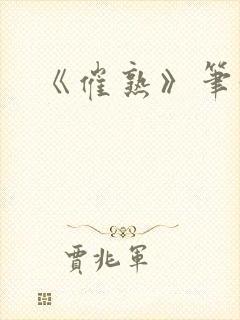 《催熟》筆
賈兆軍